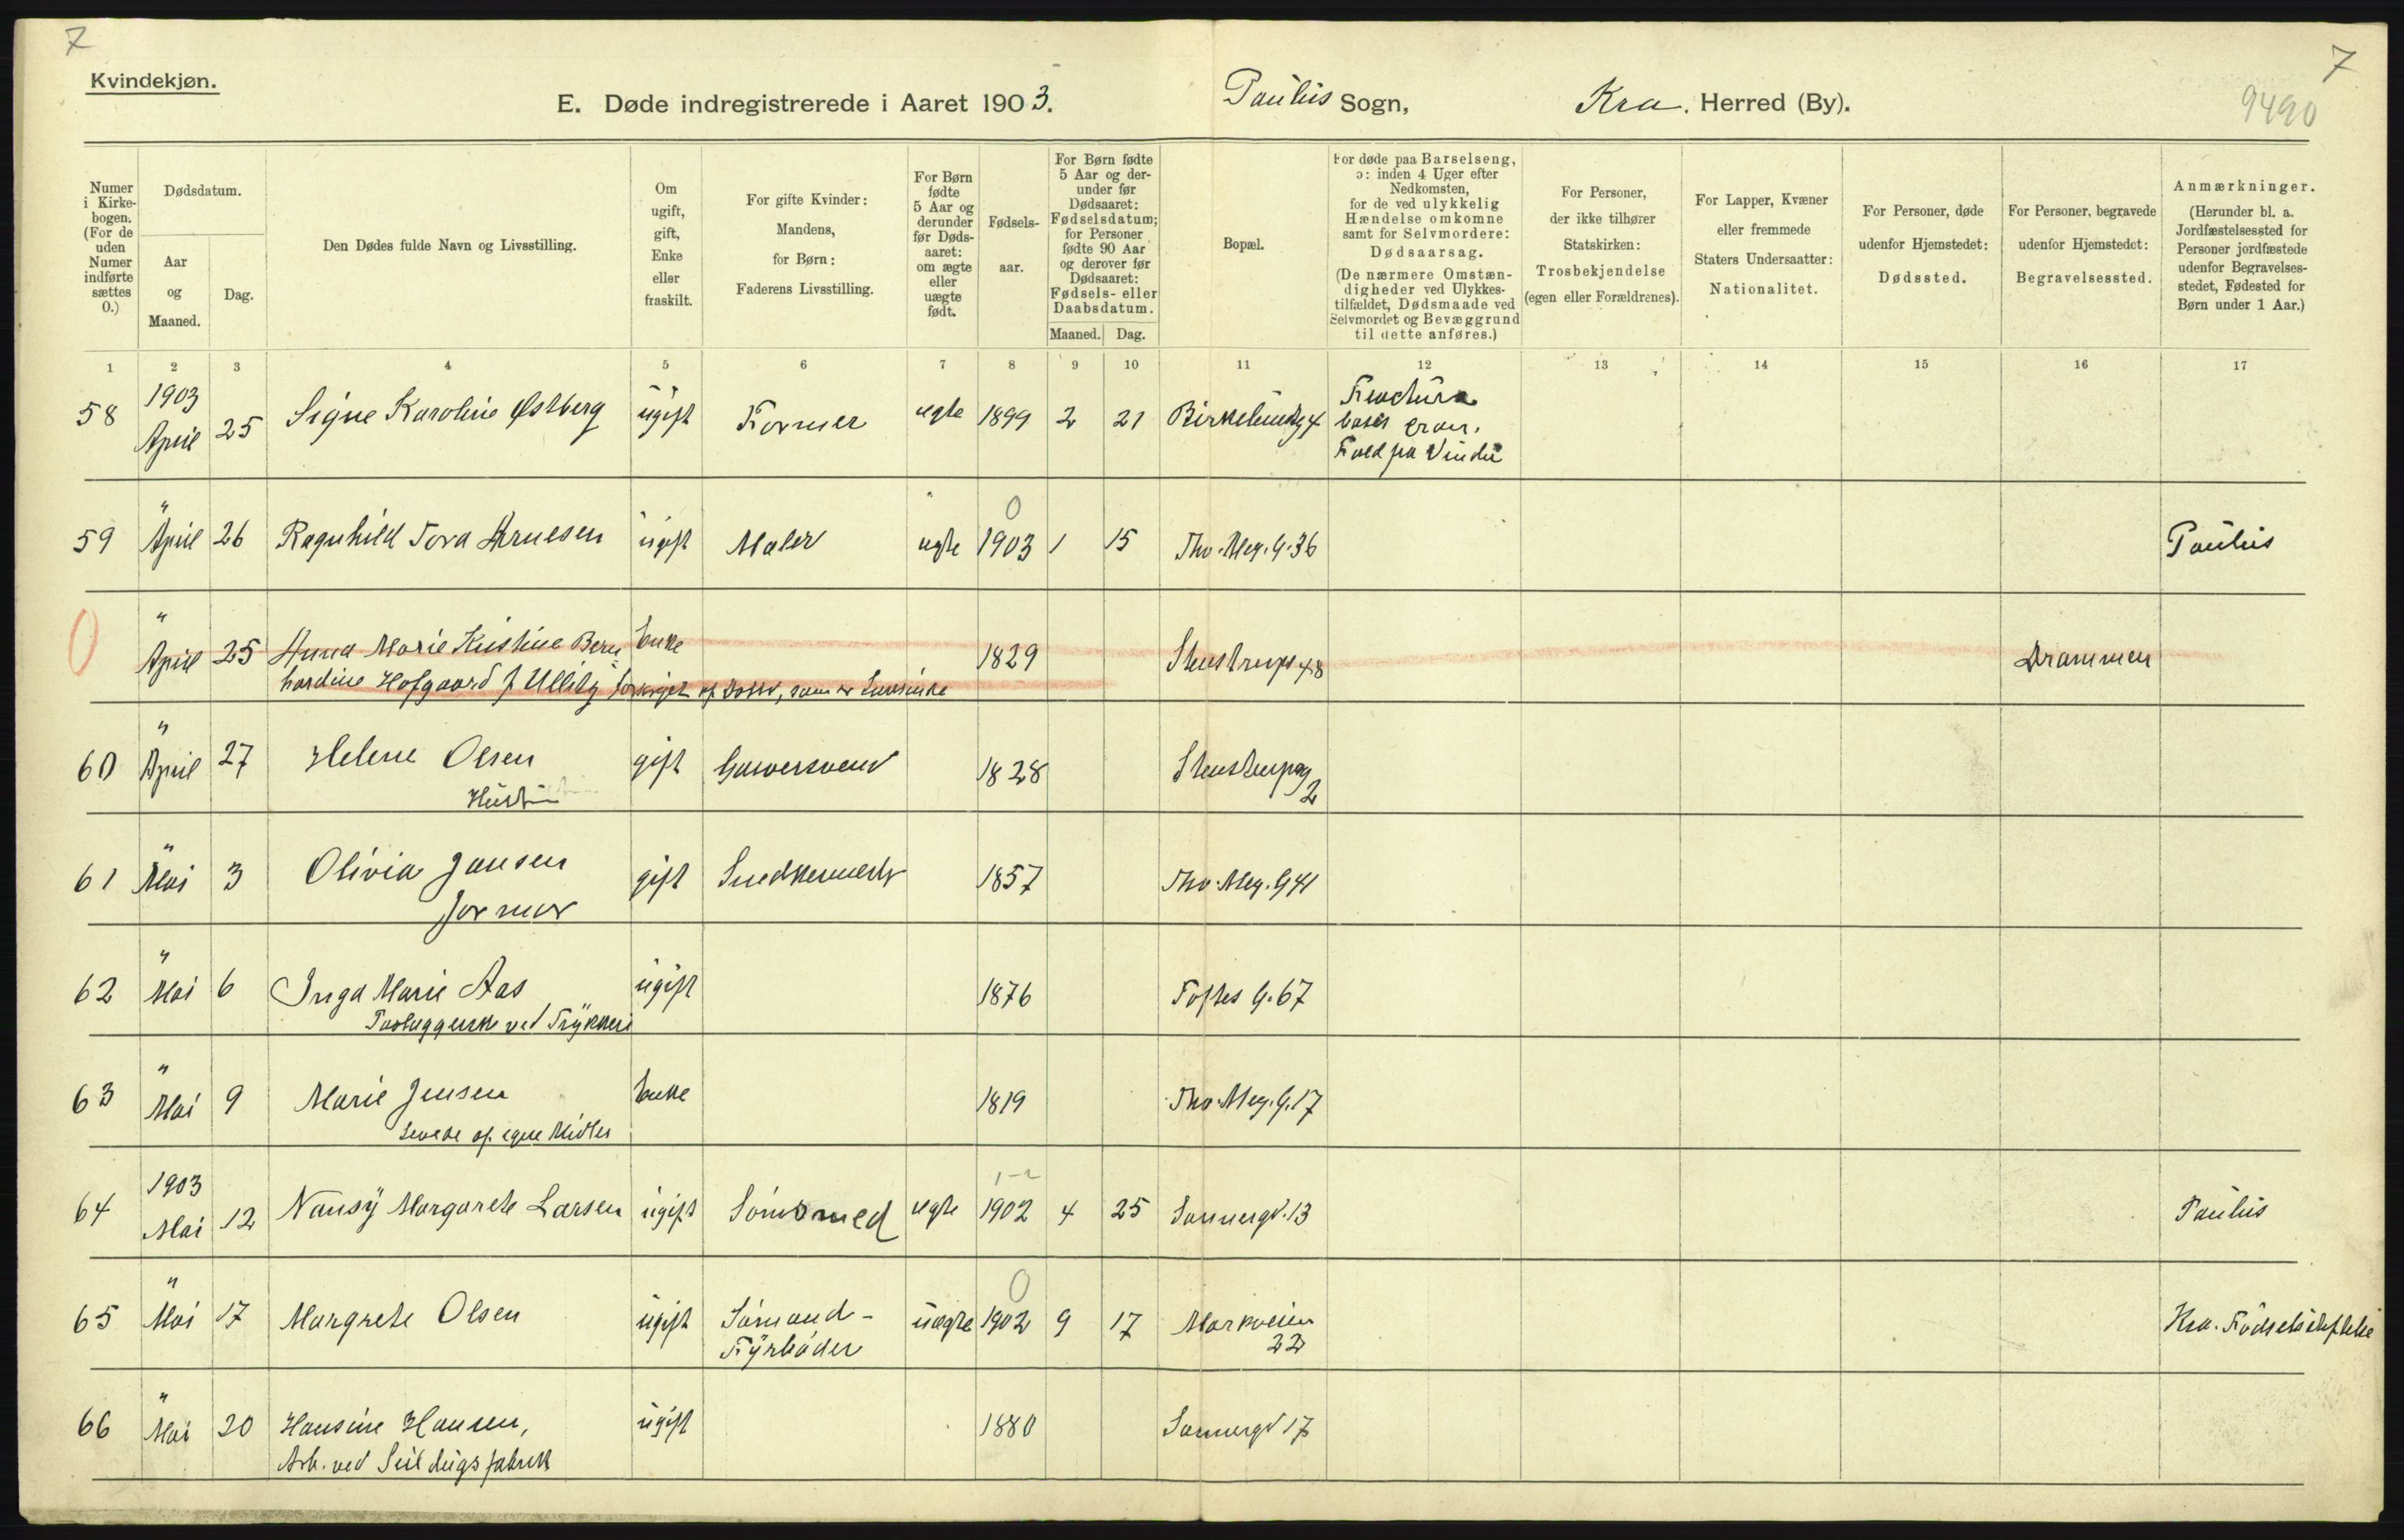 7
7
Kvindekjøn.
E. Døde indregistrerede i Aaret 1903. Paulus Sogn, Kra. Herred (By).
9490
Numer i Kirkebogen. (For de uden Numer indførte sættes 0.)
Dødsdatum.
Aar og Maaned.
Dag.
Den Dødes fulde Navn og Livsstilling.
Om ugift, gift, Enke eller fraskilt.
For gifte Kvinder: Mandens, for Børn: Faderens Livsstilling.
For Børn fødte 5 Aar og derunder før Dødsaaret: om ægte eller uægte født.
Fødselsaar.
For Børn fødte 5 Aar og derunder før Dødsaaret: Fødselsdatum; for Personer fødte 90 Aar og derover før Dødsaaret: Fødsels- eller Daabsdatum.
Maaned. Dag.
Bopæl.
For døde paa Barselseng, ɔ: inden 4 Uger efter Nedkomsten, for de ved ulykkelig Hændelse omkomne samt for Selvmordere: Dødsaarsag. (De nærmere Omstændigheder ved Ulykkestilfældet, Dødsmaade ved Selvmordet og Bevæggrund til dette anføres.)
For Personer, der ikke tilhører Statskirken: Trosbekjendelse (egen eller Forældrenes).
For Lapper, Kvæner eller fremmede Staters Undersaatter: Nationalitet.
For Personer, døde udenfor Hjemstedet: Dødssted.
For Personer, begravede udenfor Hjemstedet: Begravelsessted.
Anmærkninger. (Herunder bl. a. Jordfæstelsessted for Personer jordfæstede udenfor Begravelsesstedet, Fødested for Børn under 1 Aar.)
1 2 3 4 5 6 7 8 9 10 11 12 13 14 15 16 17
58 1903 April 25 Signe Karoline Østberg ugift Former ægte 1899 2 21 Birkelundg 4 Fractura
basis cran.
Fald fra Vindu
59 " April 26 Ragnhild Tora Arnesen ugift Maler ægte 0 1903 1 15 Thv. Mey. G. 36 Paulus
0 " April 25 Anna Marie Kristine Bern Enke 1829 Stenstrups 48 Drammen
hardine Hofgaard f Ullitz forsørget af Datter, som er
60 " April 27 Helene Olsen gift Garversvend 1828 Stenstrupsg
Hustru 2
61 " Mai 3 Olivia Jansen gift Snedkermester 1857 Thv. Mey. G 41
Jormor
62 " Mai 6 Inga Marie Aas ugift 1876 Toftes G. 67
ved Trykkeri
63 " Mai 9 Marie Jensen Enke 1819 Thv. Mey. G. 17
Levede af egne Midler
64 1903 Mai 12 Nansy Margarete Larsen ugift ægte 1902 4 25 Sannergd. 13 Paulus
65 " Mai 17 Margrete Olsen ugift Sømand- uægte 0 1902 9 17 Markveien Kra. Fødselsstiftelse
Fyrbøder 22
66 " Mai 20 Hansine Hansen, ugift 1880 Sannergd 17
Arb. ved Seildugsfabrik